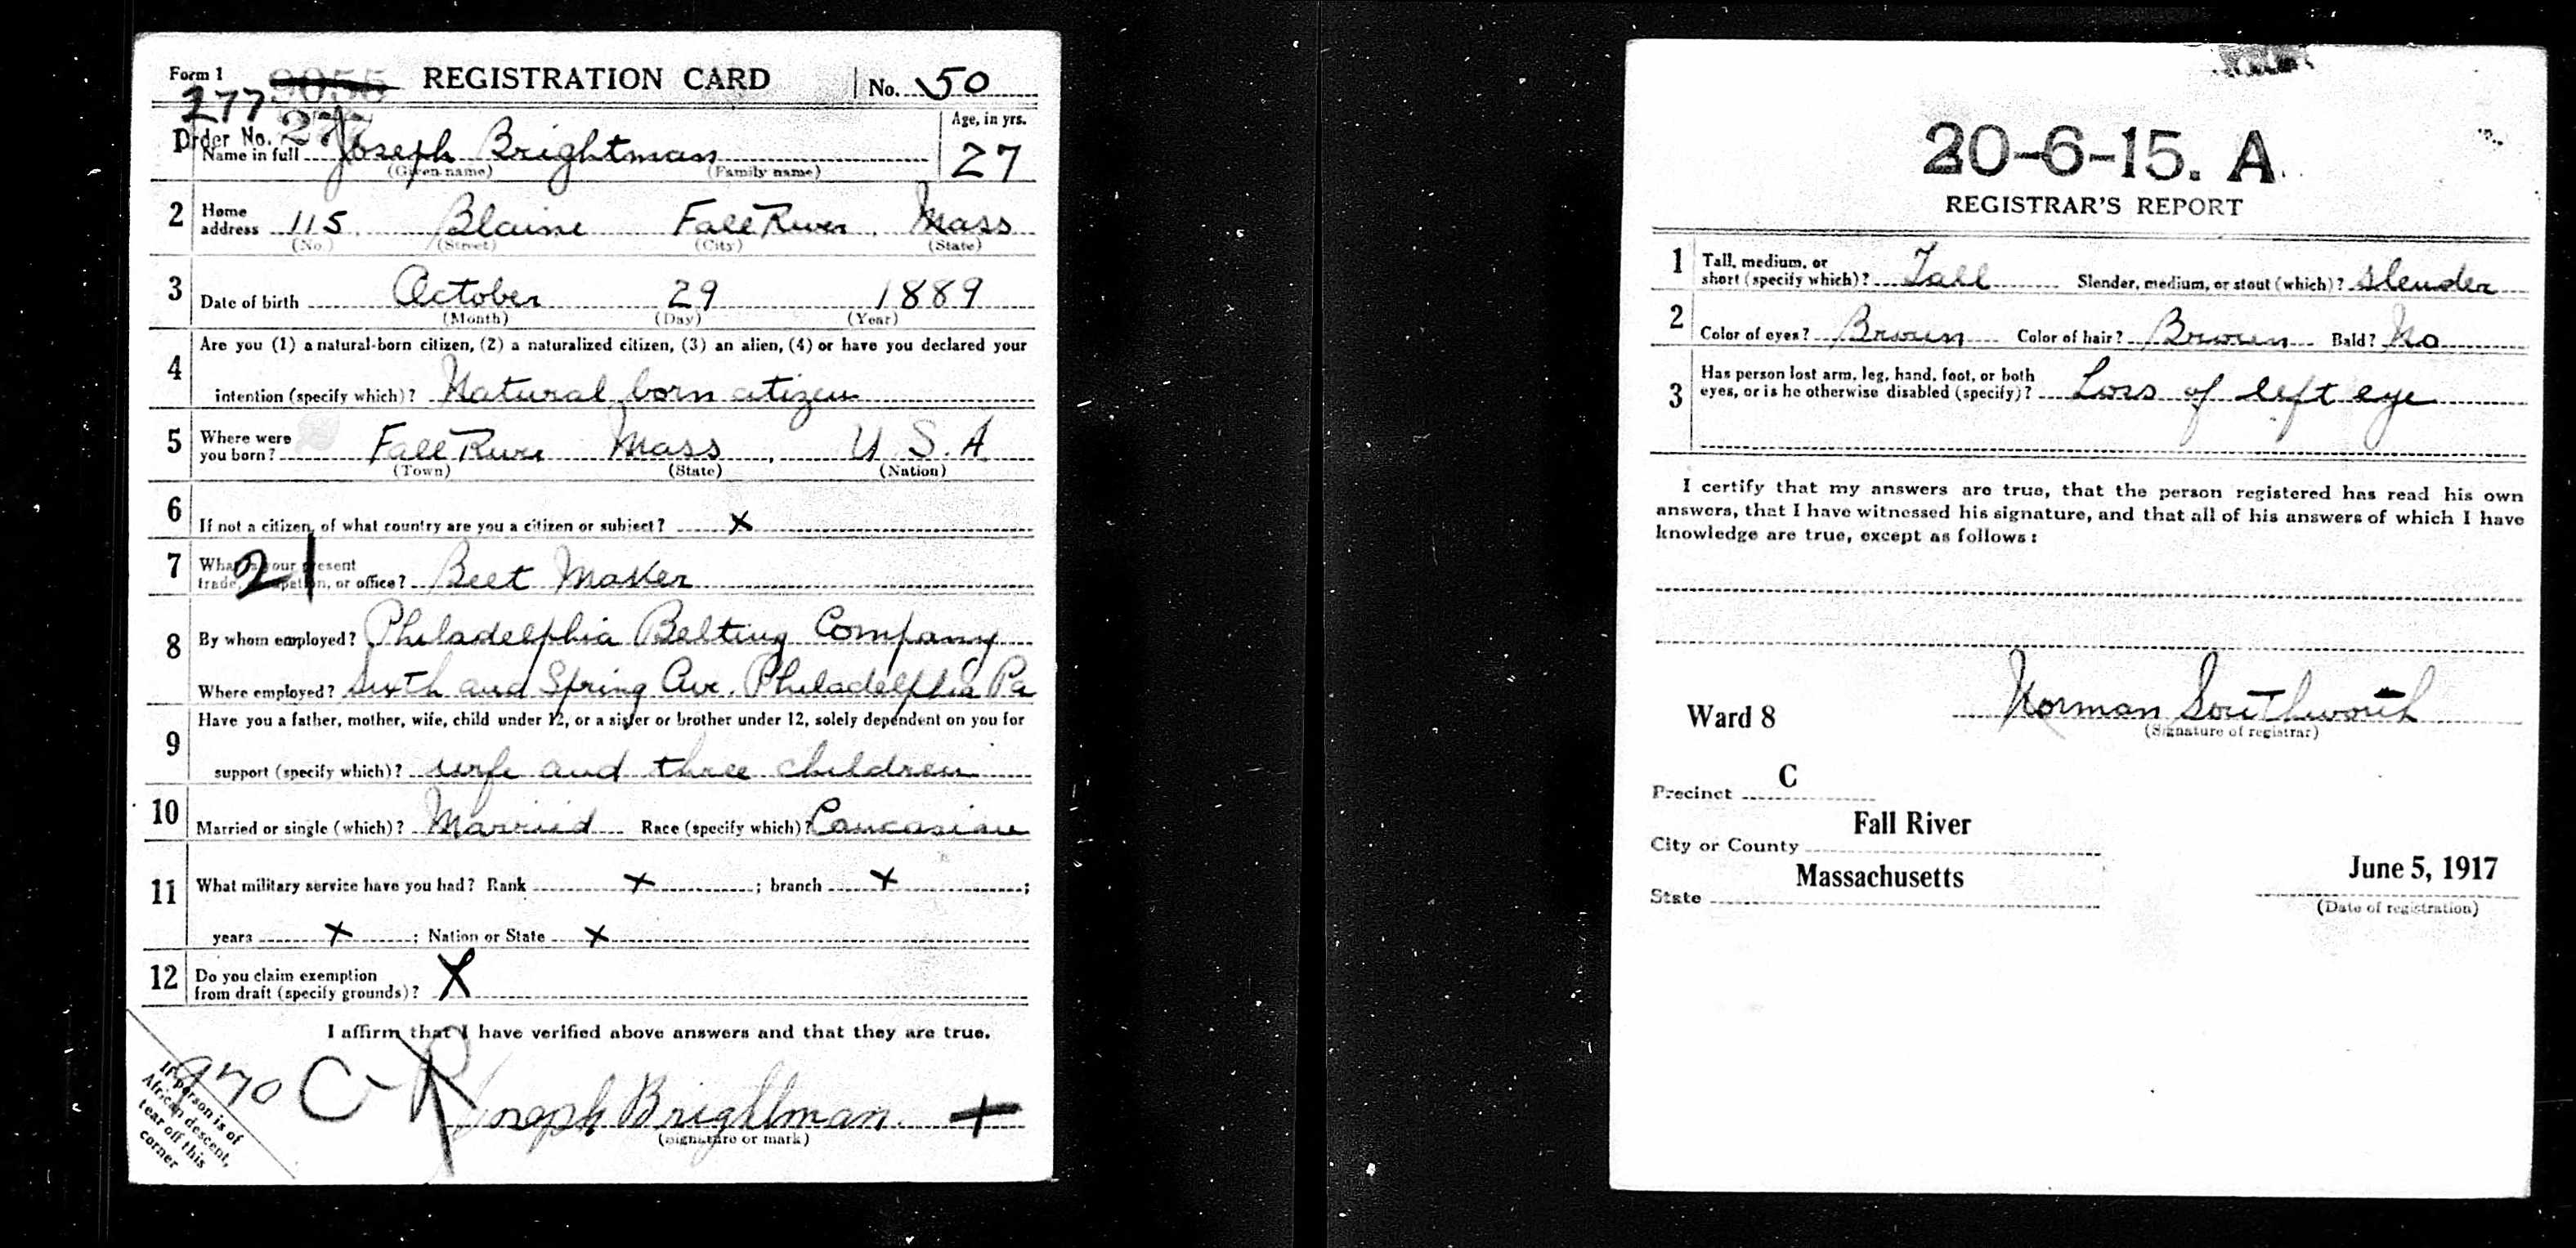 Form 1 REGISTRATION CARD No. 50
277
Order No. 277
1 Name in full Joseph Brightman Age, in yrs.
(Given name) (Family name) 27
2 Home address 115 Blaine Fall River, Mass
(No.) (Street) (City) (State)
3 Date of birth October 29 1889
(Month) (Day) (Year)
4 Are you (1) a natural-born citizen, (2) a naturalized citizen, (3) an alien, (4) or have you declared your
intention (specify which)? Natural born citizen
5 Where were you born? Fall River Mass, U S. A
(Town) (State) (Nation)
6 If not a citizen, of what country are you a citizen or subject? X
7 What is your present
trade, occupation, or office? Beet Maker
21
8 By whom employed? Philadelphia Belting Company
Where employed? Sixth and Spring Ave. Philadelphia Pa
9 Have you a father, mother, wife, child under 12, or a sister or brother under 12, solely dependent on you for
support (specify which)? wife and three children
10 Married or single (which)? Married Race (specify which)? Caucasian
11 What military service have you had? Rank X ; branch X ;
years X ; Nation or State X
12 Do you claim exemption
from draft (specify grounds)? X
I affirm that I have verified above answers and that they are true.
970 C-R
Joseph Brightman. +
(Signature or mark)
If person is of
African descent,
tear off this
corner
20-6-15. A
REGISTRAR'S REPORT
1 Tall, medium, or
short (specify which)? Tall Slender, medium, or stout (which)? slender
2 Color of eyes? Brown Color of hair? Brown Bald? No
3 Has person lost arm, leg, hand, foot, or both
eyes, or is he otherwise disabled (specify)? Loss of left eye
I certify that my answers are true, that the person registered has read his own
answers, that I have witnessed his signature, and that all of his answers of which I have
knowledge are true, except as follows:
Norman Southworth
(Signature of registrar)
Ward 8
Precinct C
City or County Fall River
State Massachusetts
June 5, 1917
(Date of registration)